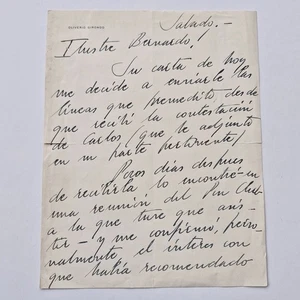 OLIVERIO GIRONDO
Sabado.-
Ilustre Bernardo!
Su carta de hoy
me decide a enviarle las
líneas que premedito desde
que recibí la contestación
de Carlos, que le adjunto
en su parte pertinente.
Pocos días despues
de recibirla lo encontré en
una reunión del Pen Club
a la que tuve que asis-
tir - y me confirmó, perso-
nalmente, el interes con
que había recomendado